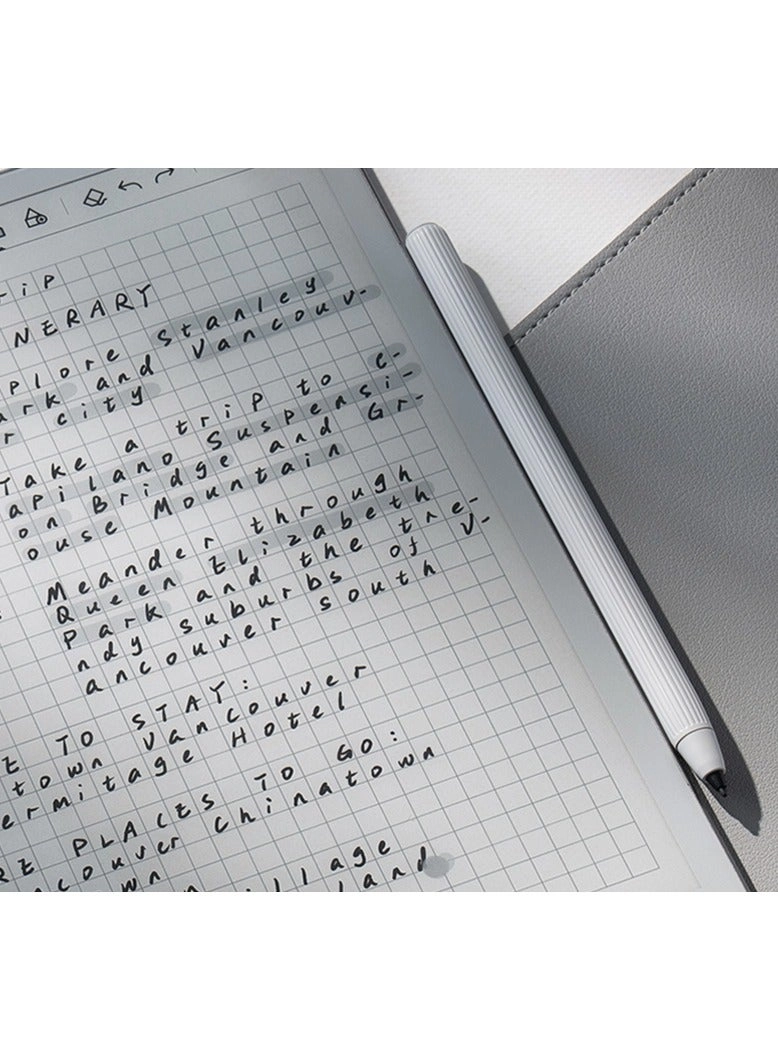 rip
NERARY
plore Stanley
ark and Vancouv-
r city
Take a trip to C-
apilano Suspensi-
on Bridge and Gr-
ouse Mountain
Meander through
Queen Elizabeth
Park and the tre-
ndy suburbs of V-
ancouver South
E TO STAY:
town Vancouver
ermitage Hotel
RE PLACES TO GO:
ncouver Chinatown
own
illage
land